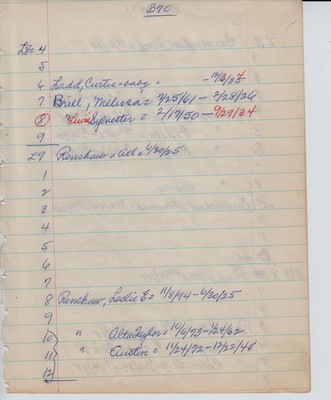 B20
L82. 4
5
6 Ladd, Curtis = baby = - 12/3/35
7 Brill, Melissa = 7/25/61 - 2/28/26
8 Sylvester = 2/17/50 - 9/29/34
9
L9 Renshaw = Ad = 6/30/25
1
2
3
4
5
6
7
8 Renshaw, Leslie E = 11/8/94 - 6/30/25
9
10 " Abta Taylor = 10/6/73 - 1/24/62
11 " Austin = 11/24/72 - 12/22/48
12